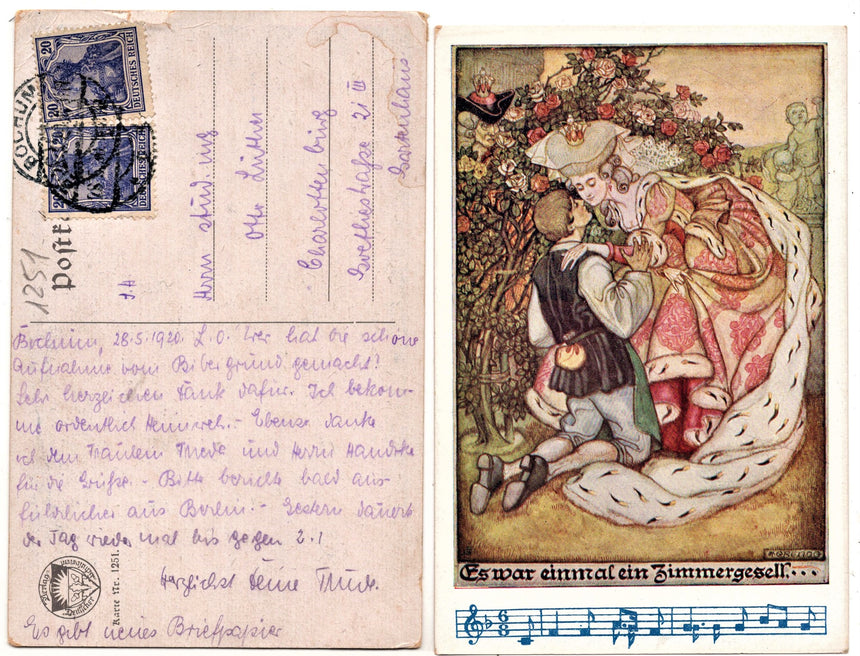 20 20
DEUTSCHES REICH
DEUTSCHES REICH
BOCHUM
1251
Postk
Herrn stud. ing
Otto Lüther
Charlottenburg
Goethestraße 21 III
Gartenhaus
Bochum, 28.5.1920. L. O. Wer hat die schöne
Aufnahme vom Bibergrund gemacht?
Sehr herzlichen Dank dafür. Ich bekom-
me ordentlich Heimweh.- Ebenso danke
ich dem Fräulein und Herrn
für die Grüße. - Bitte berichte bald aus-
führlicher aus Berlin. - Gestern dauerte
der Tag wieder mal bis gegen 2.!
Herzlichst Deine Trude.
Es gibt neues Briefpapier
Karte Nr. 1251.
Es war einmal ein Zimmergesell...
6 8